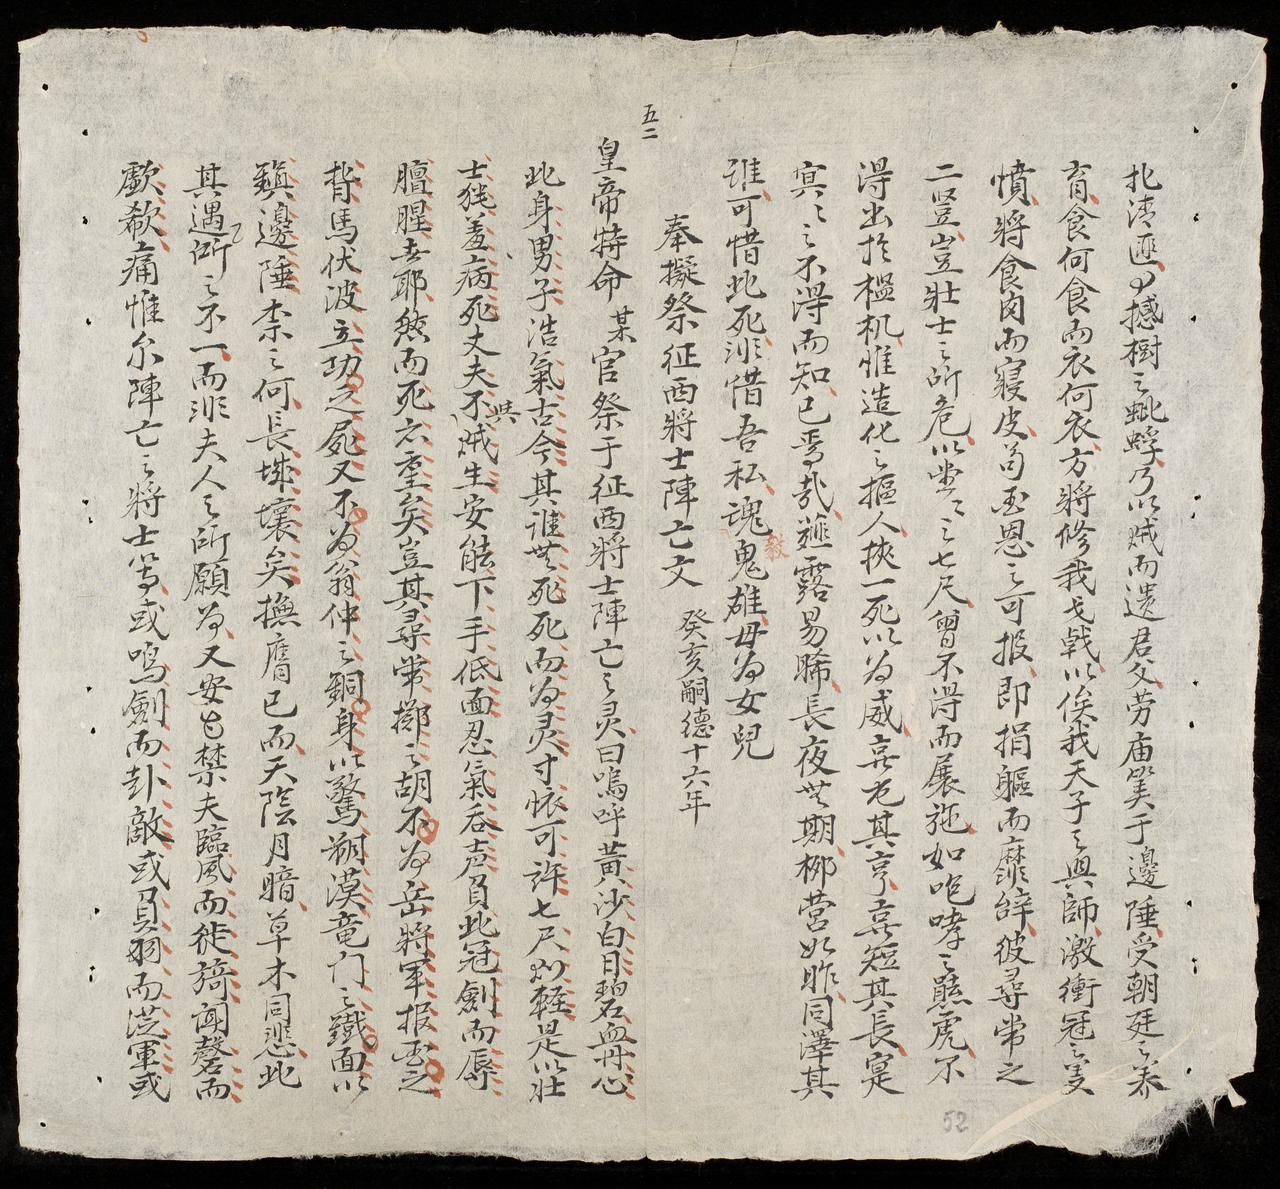 北清匪四撼樹之蚍蜉乃以賊而遺君父劳庙筭于邊陲受朝廷之养
育食何食而衣何衣方將修我戈戟以俟我天子之興師激衝冠之
憤將食肉而寢皮苟玉恩之可报即捐軀而靡辞彼尋常之
二豎豈壯士之所危以堂之之七尺曾不得而展施如咆哮之縣虎不
得出於檻机惟造化之摳人挾一死以為威无厄其亨无短其長寔
冥之之不得而知已焉哉薤露易晞長夜无期柳营如昨同澤其
誰可惜此死非惜吾私魂鬼雄毋為女兒
毅
奉擬祭征西將士陣亡文 癸亥嗣德十六年
五二
皇帝特命某官祭于征西將士陣亡之灵曰嗚呼黃沙白日碧血丹心
此身男子浩氣古今其誰无死死而為灵寸怀可許七尺如輕是以壯
士羞病死丈夫不與賊生安能下手低面忍氣吞声負此冠劍而辱
膻腥去耶然而死亦重矣豈其尋常擲之胡不為岳將軍报玉之
背馬伏波立功之屍又不為翁仲之銅身以驚朔漠竜门之鐵面以
鎮邊陲柰之何長城壞矣撫膺已而天陰月暗草木同悲此
其遇所之不一而非夫人之所願為又安乜禁夫臨風而徙𥚃聞磬而
歔欷痛惟尔陣亡之將士等或鳴劍而卦敵或負羽而從軍或
52